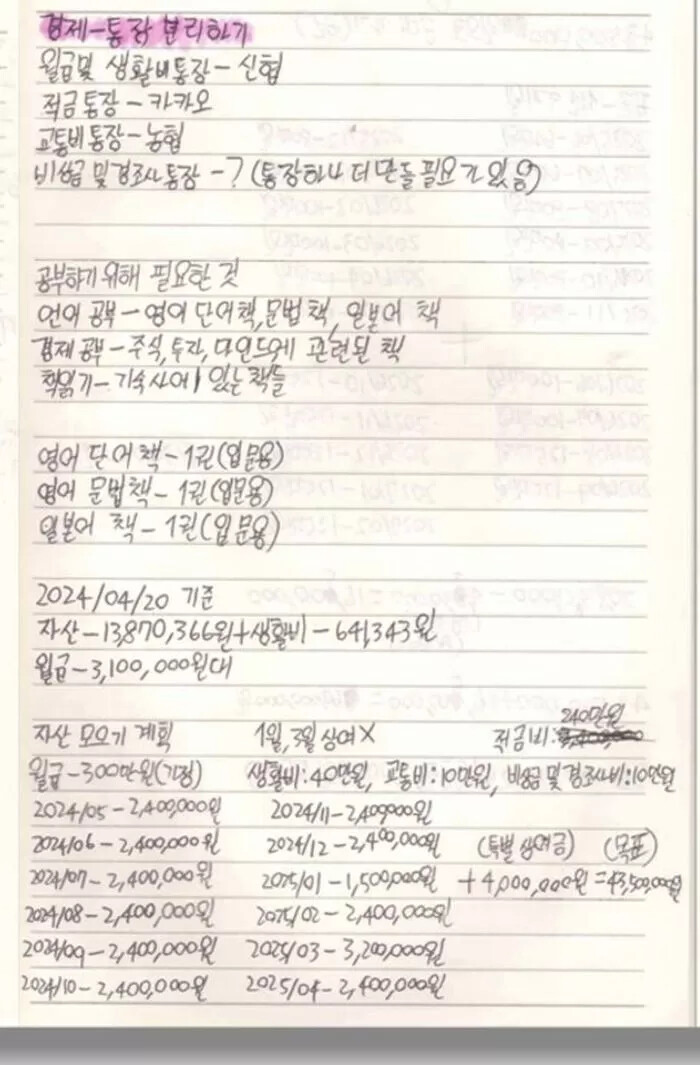 경제-통장 분리하기
월급및 생활비통장-신협
적금통장-카카오
교통비통장-농협
비상금 및 경조사통장-? (통장하나 더 만들 필요가 있음)
공부하기 위해 필요한 것
언어 공부-영어 단어책, 문법책, 일본어 책
경제공부-주식, 투자, 마인드에 관련된 책
책읽기-기숙사에 있는책들
영어 단어책-1권(입문용)
영어 문법책-1권(입문용)
일본어 책-1권(입문용)
2024/04/20 기준
자산-13,870,366원+생활비-641,343원
월급-3,100,000원대
자산 모으기 계획 1월, 3월 상여X 적금비: 240만원
월급-300만원(가정) 생활비:40만원, 교통비:10만원, 비상금 및 경조사비:10만원
2024/05-2,400,000원 2024/11-2,400000원
2024/06-2,400,000원 2024/12-2,400,000원 (특별 상여금) (목표)
2024/07-2,400,000원 2025/01-1,500,000원 +4,000,000원=43,500,000원
2024/08-2,400,000원 2025/02-2,400,000원
2024/09-2,400,000원 2025/03-3,200,000원
2024/10-2,400,000원 2025/04-2,400,000원